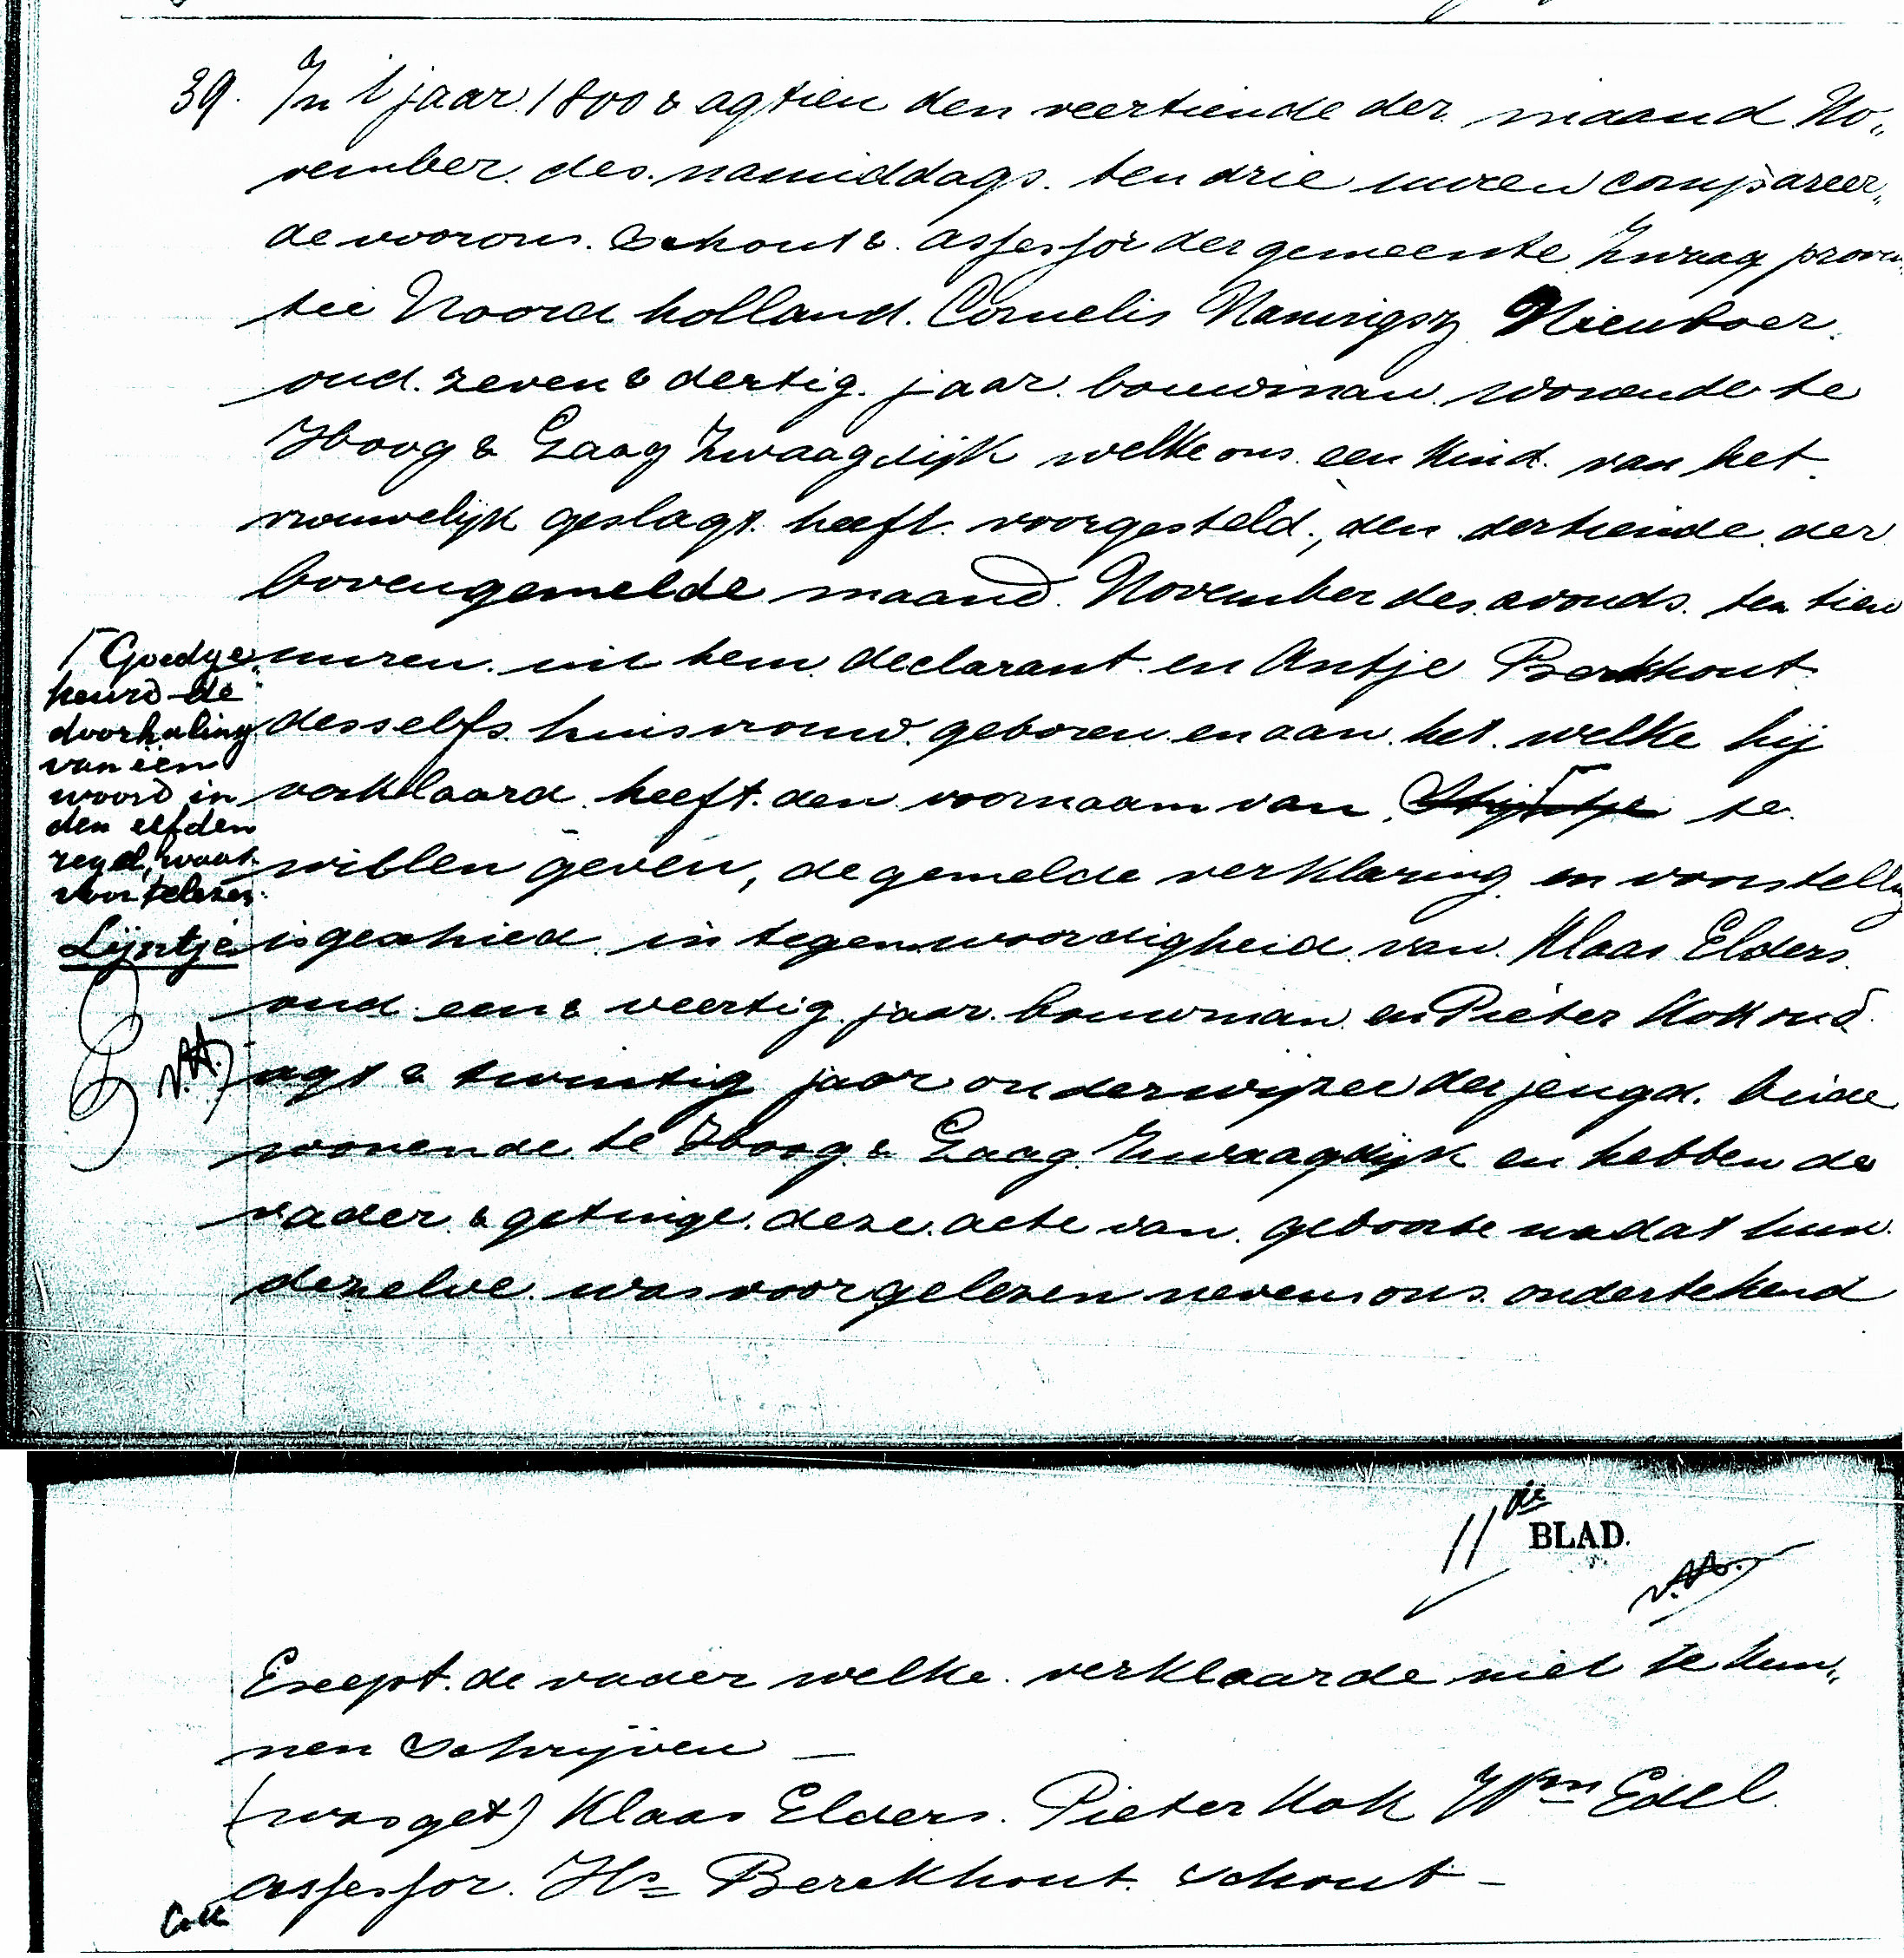 39. In 't jaar 1800 & agtien den veertiende der maand No„
vember des namiddags ten drie uuren compareer„
de voor ons Schout & assessor der gemeente Zwaag provin
tie Noord holland. Cornelis Naningsz Nieuboer
oud zeven & dertig jaar bouwman wonende te
Hoog & Laag Zwaagdijk welke ons een kind van het
vrouwelijk geslagt heeft voorgesteld, den dertiende der
bovengemelde maand November des avonds ten tien
uuren uit hem declarant en Antje Berkhout
desselfs huisvrouw geboren en aan het welke hij
verklaard heeft den voornaam van Stijntje te
willen geven, de gemelde verklaring en voorstelling
is geschied in tegenwoordigheid van Klaas Elders
oud een & veertig jaar bouwman en Pieter Kok oud
agt & twintig jaar onderwijzer der jeugd. beide
wonende te Hoog & Laag Zwaagdijk en hebben de
vader & getuige deze acte van geboorte nadat hun
dezelve was voorgelezen nevens ons ondertekend
Γ Goedge„
keurd de
doorhaling
van een
woord in
den elfden
regel, waar
voor telezen
Lijntje
11de BLAD.
Except de vader welke verklaarde niet te kun„
nen Schrijven —
(was get) Klaas Elders. Pieter Kok Wm Edel
assessor. Hs Berckhout Schout —
Coll